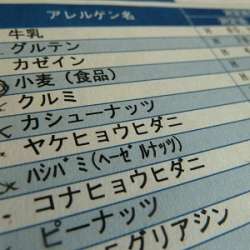 アレルゲン名
牛乳
グルテン
カゼイン
小麦(食品)
クルミ
カシューナッツ
ヤケヒョウヒダニ
ﾊｼﾊﾞﾐ(ﾍｰｾﾞﾙﾅｯﾂ)
コナヒョウヒダニ
ピーナッツ
グリアジン